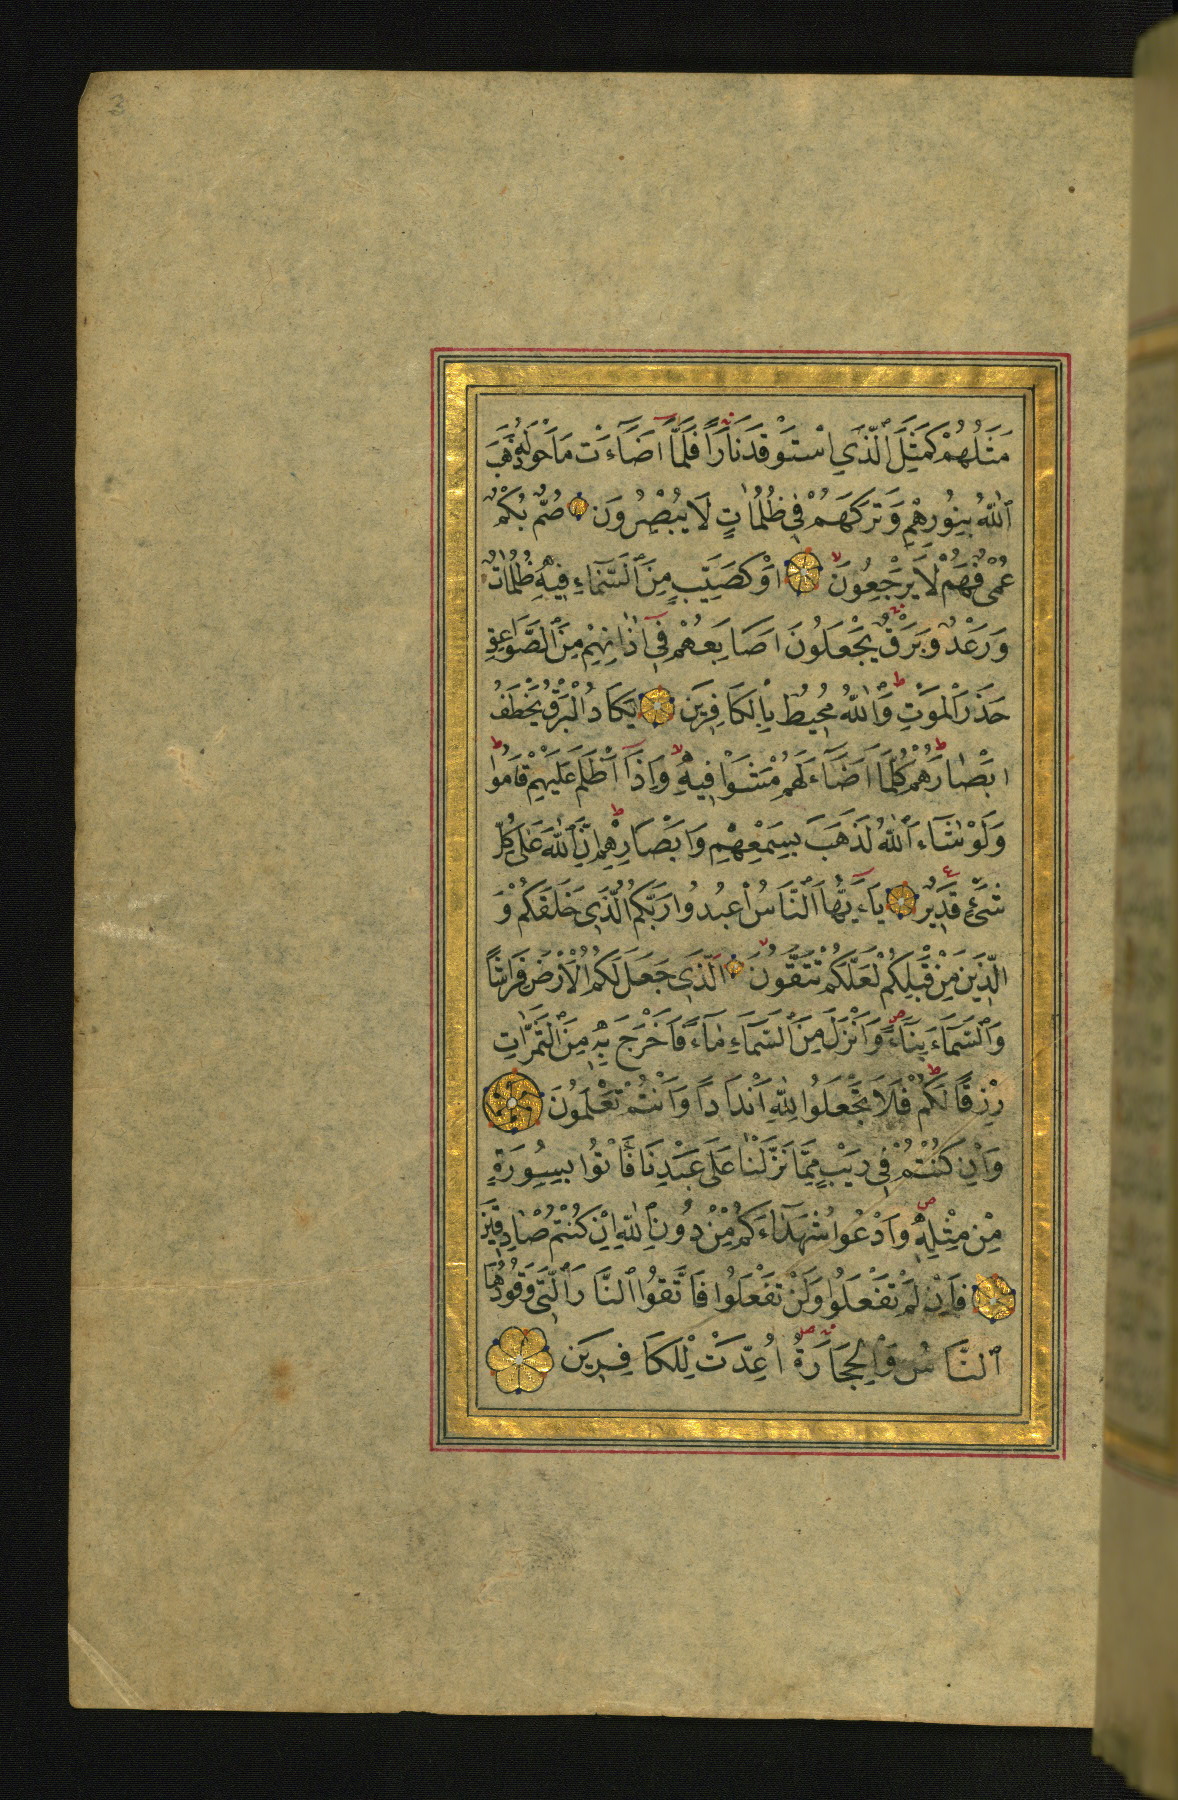 3
مَثَلُهُمْ كَمَثَلِ الَّذِي اسْتَوْقَدَ نَارًا فَلَمَّا اَضَاءَتْ مَا حَوْلَهُ ذَهَبَ
اللّٰهُ بِنُورِهِمْ وَتَرَكَهُمْ فِي ظُلُمَاتٍ لَا يُبْصِرُونَ صُمٌّ بُكْمٌ
عُمْيٌ فَهُمْ لَا يَرْجِعُونَ اَوْ كَصَيِّبٍ مِنَ السَّمَاءِ فِيهِ ظُلُمَاتٌ
وَرَعْدٌ وَبَرْقٌ يَجْعَلُونَ اَصَابِعَهُمْ فِي اٰذَانِهِمْ مِنَ الصَّوَاعِقِ
حَذَرَ الْمَوْتِ وَاللّٰهُ مُحِيطٌ بِالْكَافِرِينَ يَكَادُ الْبَرْقُ يَخْطَفُ
اَبْصَارَهُمْ كُلَّمَا اَضَاءَ لَهُمْ مَشَوْا فِيهِ وَاِذَا اَظْلَمَ عَلَيْهِمْ قَامُوا
وَلَوْ شَاءَ اللّٰهُ لَذَهَبَ بِسَمْعِهِمْ وَاَبْصَارِهِمْ اِنَّ اللّٰهَ عَلٰى كُلِّ
شَيْءٍ قَدِيرٌ يَاءَيُّهَا النَّاسُ اعْبُدُوا رَبَّكُمُ الَّذِي خَلَقَكُمْ وَ
الَّذِينَ مِنْ قَبْلِكُمْ لَعَلَّكُمْ تَتَّقُونَ الَّذِي جَعَلَ لَكُمُ الْاَرْضَ فِرَاشًا
وَالسَّمَاءَ بِنَاءً وَاَنْزَلَ مِنَ السَّمَاءِ مَاءً فَاَخْرَجَ بِهِ مِنَ الثَّمَرَاتِ
رِزْقًا لَكُمْ فَلَا تَجْعَلُوا لِلّٰهِ اَنْدَادًا وَاَنْتُمْ تَعْلَمُونَ
وَاِنْ كُنْتُمْ فِي رَيْبٍ مِمَّا نَزَّلْنَا عَلٰى عَبْدِنَا فَأْتُوا بِسُورَةٍ
مِنْ مِثْلِهِ وَادْعُوا شُهَدَاءَكُمْ مِنْ دُونِ اللّٰهِ اِنْ كُنْتُمْ صَادِقِينَ
فَاِنْ لَمْ تَفْعَلُوا وَلَنْ تَفْعَلُوا فَاتَّقُوا النَّارَ الَّتِي وَقُودُهَا
النَّاسُ وَالْحِجَارَةُ اُعِدَّتْ لِلْكَافِرِينَ